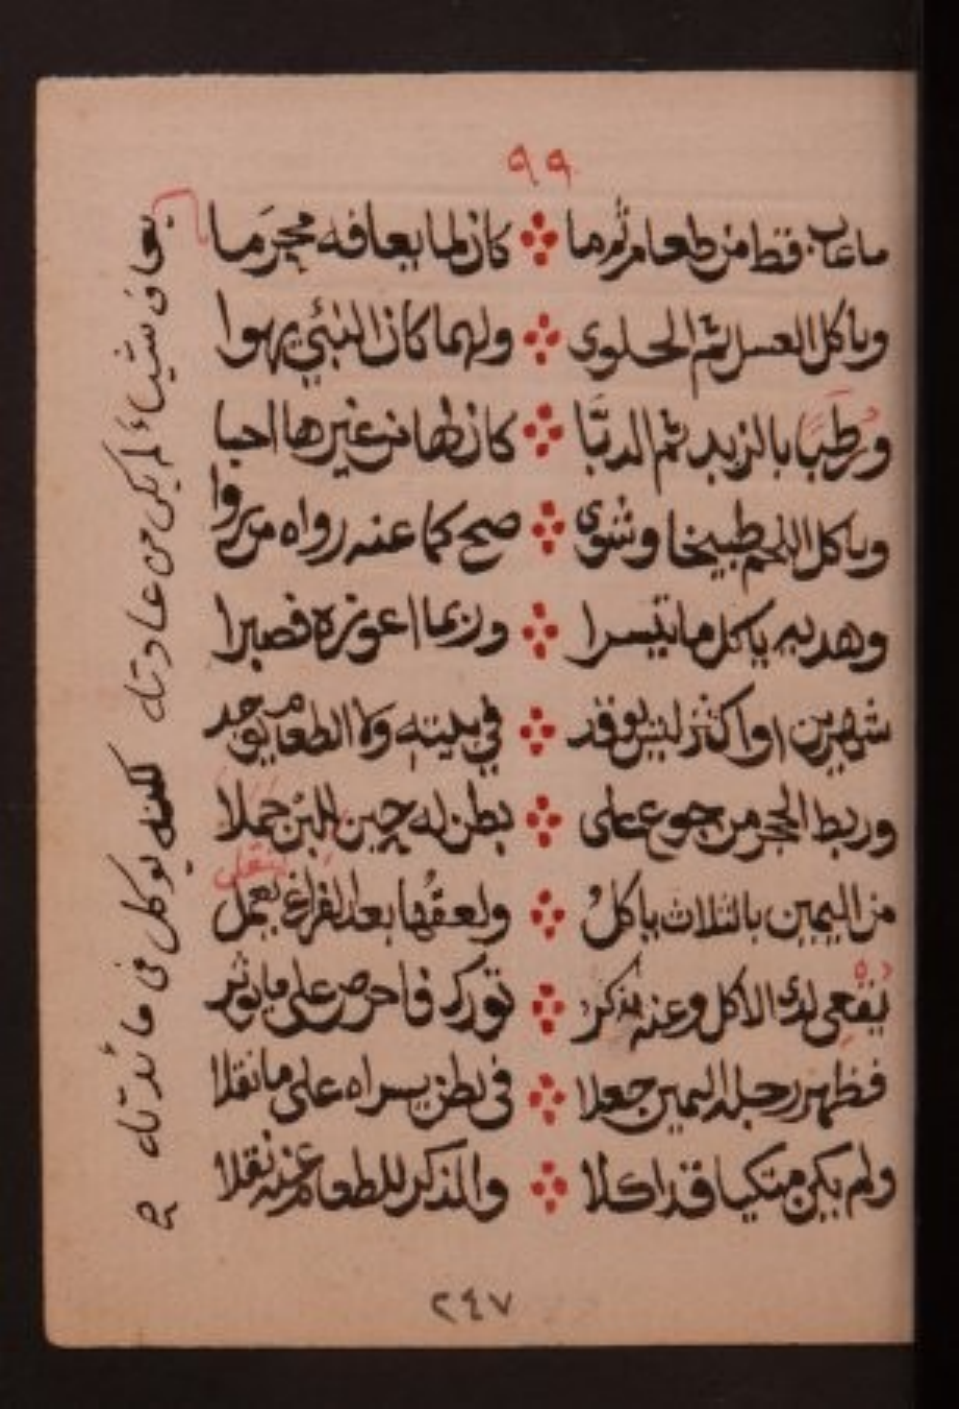 ٩٩
ماعاب قط من طعام ثم ما كان لما يعافه محرما
وياكل العسل ثم الحلوى ولهما كان النبئ يهوا
ورطبا بالزبد ثم الدبا كان لها من غيرها احبا
وياكل اللحم طبيخا وشوى صح كما عنه رواه من روا
وهديه ياكل ما تيسرا وربما اعوزه فصبرا
شهرين او اكثر ليس يوقد في بيته ولا الطعام يوجد
وربط الحجر من جوع على بطن له حين
من اليمين بالثلاث ياكل ولعقها بعد الفراغ يعمل
يقعى لدى الاكل وعنه يذكر تورك فاحرص على مايوثر
فظهر رجله اليمين جعلا في بطن يسراه على مانقلا
ولم يكن متكيا قد اكلا والذكر للطعام عنه نقلا
يعاف شيئا لم يكن من عادته
لكنه يوكل فى مائدته
٢٤٧